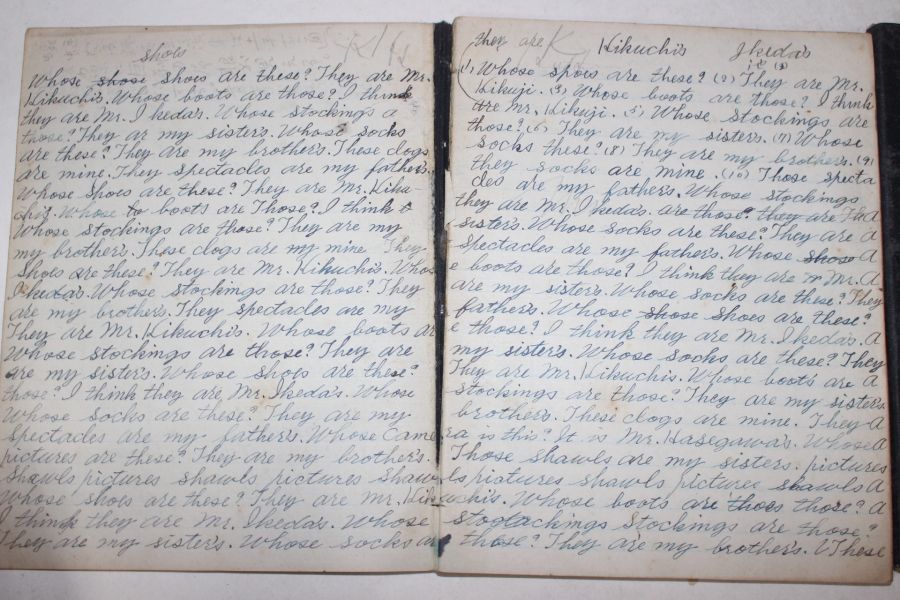 shoes
Whose shose shoes are these? They are Mr.
Kikuchi's. Whose boots are those? I think
they are Mr. Ikeda's. Whose stockings a
those? They ar my sister's. Whose socks
are these? They are my brother's. These clogs
are mine. They spectacles are my father's.
Whose shoes are these? They are Mr. Kiku
chi's. Whose to boots are Those? I think t
Whose stockings are those? They are my
my brother's. These clogs are my mine They
Shoes are these? They are Mr. Kikuchi's. Whos
Ikeda's. Whose stockings are those? They
are my brother's. They spectacles are my
They are Mr. Kikuchi's. Whose boots ar
Whose stockings are those? They are
are my sister's. Whose shoes are these?
those? I think they are Mr. Ikeda's. Whose
Whose socks are these? They are my
spectacles are my father's. Whose Came
pictures are these? They are my brother's.
Shawls pictures shawls pictures shaw
Whose shoes are these? They are Mr. Kik
I think they are Mr. Ikeda's. Whose
They are my sister's. Whose socks ar
they are K Kikuchi's Ikeda's
(1) Whose shoes are these? (2) They are Mr.
Kikuji. (3) Whose boots are those? I think
are Mr. Kikuji. (5) Whose stockings are
those? (6) They are my sister's. (7) Whose
socks these? (8) They are my brother's. (9)
they socks are mine. (10) Those specta
cles are my father's. Whose stockings
they are Mr. Ikeda's. are those? they are
sister's. Whose socks are these? They are A
spectacles are my father's. Whose shose A
e boots are those? I think they are m Mr. A
are my sister's. Whose socks are these? They
father's. Whose shose shoes are these?
e those? I think they are Mr. Ikeda's. A
my sister's. Whose socks are these? They
They are Mr. Kikuchi's. Whose boots are A
stockings are those? They are my sister's.
brother's. These clogs are mine. They A
ra is this? It is Mr. Hasegawa's. Whose A
Those shawls are my sisters. pictures
ls pictures shawls pictures shawls A
uchi's. Whose boots are thoes those? A
stockings Stockings are those?
those? They are my brother's. (These